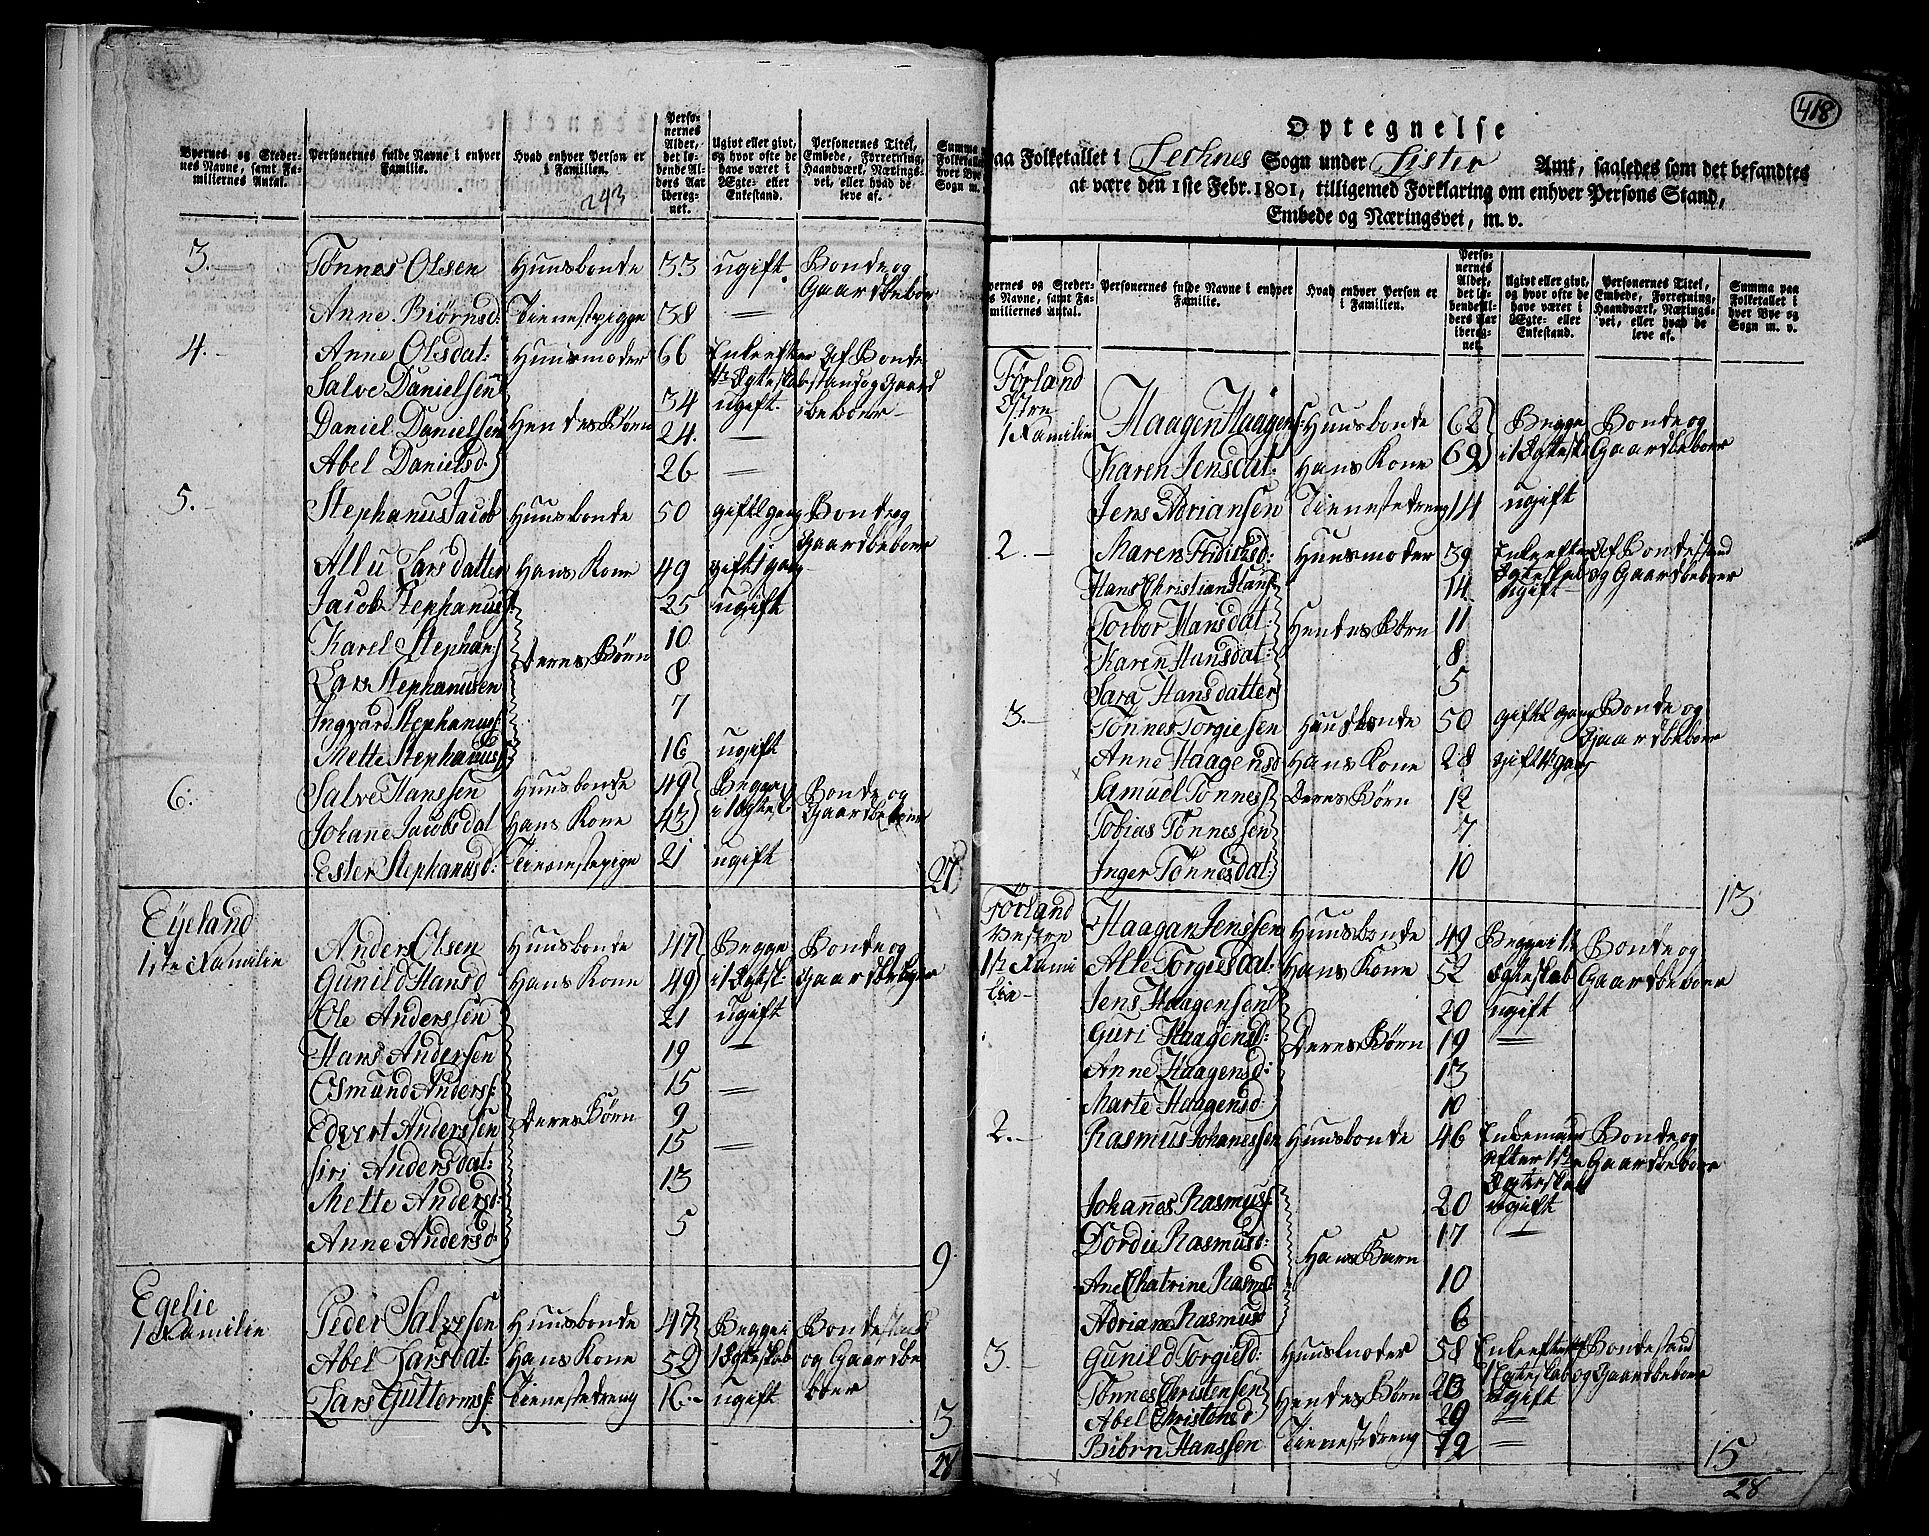 Byernes og Steder-
nes Navne, samt Fa-
miliernes Antal.
Personernes fulde Navne i enhver
Familie.
Hvad enhver Person er
i Familien.
243
Perso-
nernes
Alder,
det lø-
bende Al-
ders Aar
ibereg-
net.
Ugivt eller givt,
og hvor ofte de
have været i
Ægte- eller
Enkestand.
Personernes Titel,
Embede, Forretning,
Haandværk, Nærings-
vei, eller hvad de
leve af.
Summa
Folketallet
hver Bye
Sogn m.
3. Tønnes Olsen Huusbonde 33 ugift. Bonde og
Gaardbeboer
Anne Biørnsd: Tienestepigge 38 —
4. Anne Olsdat: Huusmoder 66 Enke efter Af Bonde
1te Egteskab stand og Gaard
Salve Danielsen 34 ugift. beboer
Daniel Danielsen Hendes Børn 24. —
Abel Danielsd. 26 —
5. Stephanus Jacob Huusbonde 50 gift 1 gang Bonde og
Gaardbeboer
Allu Larsdatter Hans Kone 49 gift 1 gang
Jacob Stephanus: 25 ugift
Karel Stephan: 10
Deres Børn
Lars Stephanusen 8
Ingvard Stephanus: 7
Mette Stephanus: 16 ugift
6. Salve Hanssen Huusbonde 49 Begge Bonde og
Johane Jacobsdat Hans Kone 43 i 1 Egtesk. Gaardbeboer
Ester Stephanusd: Tienestepige 21 ugift
27
Eyeland
1ste Familie
Anders Olsen Huusbonde 47 Begge Bonde og
Gunild Hansd Hans Kone 49 i 1 Egtesk. Gaardbeboer
Ole Anderssen 21 ugift
Hans Andersen 19 —
Osmund Anders: 15 —
Edvert Anderssen Deres Børn 9
Siri Andersdat: 15 —
Mette Andersd: 13
Anne Andersd. 5
9
Egelie
1 Familie
Peder Salvesen Huusbonde 47 Begge i Bondestand
Abel Larsdat: Hans Kone 52 1 Egteskab og Gaardbe
Lars Guttorms: Tienestedreng 16 ugift boer
3
418
Optegnelse
paa Folketallet i Lechnes Sogn under Lister Amt, saaledes som det befandtes
at være den 1ste Febr. 1801, tilligemed Forklaring om enhver Persons Stand,
Embede og Næringsvei, m. v.
Byernes og Steder-
nes Navne, samt Fa-
miliernes Antal.
Personernes fulde Navne i enhver
Familie.
Hvad enhver Person er
i Familien.
Perso-
nernes
Alder,
det lø-
bende Al-
ders Aar
ibereg-
net.
Ugivt eller givt,
og hvor ofte de
have været i
Ægte- eller
Enkestand.
Personernes Titel,
Embede, Forretning,
Haandværk, Nærings-
vei, eller hvad de
leve af.
Summa paa
Folketallet i
hver Bye og
Sogn m. v.
Førland
østre
1 Familie
Haagen Haagens: Huusbonde 62 Begge Bonde og
Karen Jensdat: Hans Kone 69 i 1 Egtesk Gaardbeboer
Jens Adriansen Tienestedreng 14 ugift
2. Maren Fridichsd: Huusmoder 39 Enke efter Af Bondestand
Egteskab og Gaardbeboer
Hans Christian Hans: 14 ugift
Torbor Hansdat: Hendes Børn 11
Karen Hansdat: 8
Sara Hansdatter 5
3. Tønnes Torgiesen Huusbonde 50 gift 1 gang Bonde og
Gaardbeboer
Anne Haagensd Hans Kone 28 gift 1te gang
Samuel Tønnes: Deres Børn 12
Tobias Tønnessen 7
Inger Tønnesdat: 10
13
Førland
Vestre
1te Fami
lie
Haagan Jenssen Huusbonde 49 Begge i 1te Bonde og
Alte Torgiesdat: Hans Kone 52 Egteskab Gaardbeboer
Jens Haagensen 20 ugift
Guri Haagensd: Deres Børn 19 —
Anne Haagensd: 13
Marte Haagensd 10
2. Rasmus Johanessen Huusbonde 46 Enkemand Bonde og
efter 1ste Gaardbeboer
Egteskab
Johannes Rasmus: 20 ugift
Dordie Rasmusd: 17 —
Hans Børn
Ane Chatrine Rasms: 10
Adriane Rasmusd 6
3. Gunild Torgiesd: Huusmoder 58 Enke efter Af Bondestand
1 Egteskab og Gaardbeboer
Tønnes Christensen Hendes Børn 23 ugift
Abel Christensd 29 —
Biørn Hanssen Tienestedreng 12 —
15
28